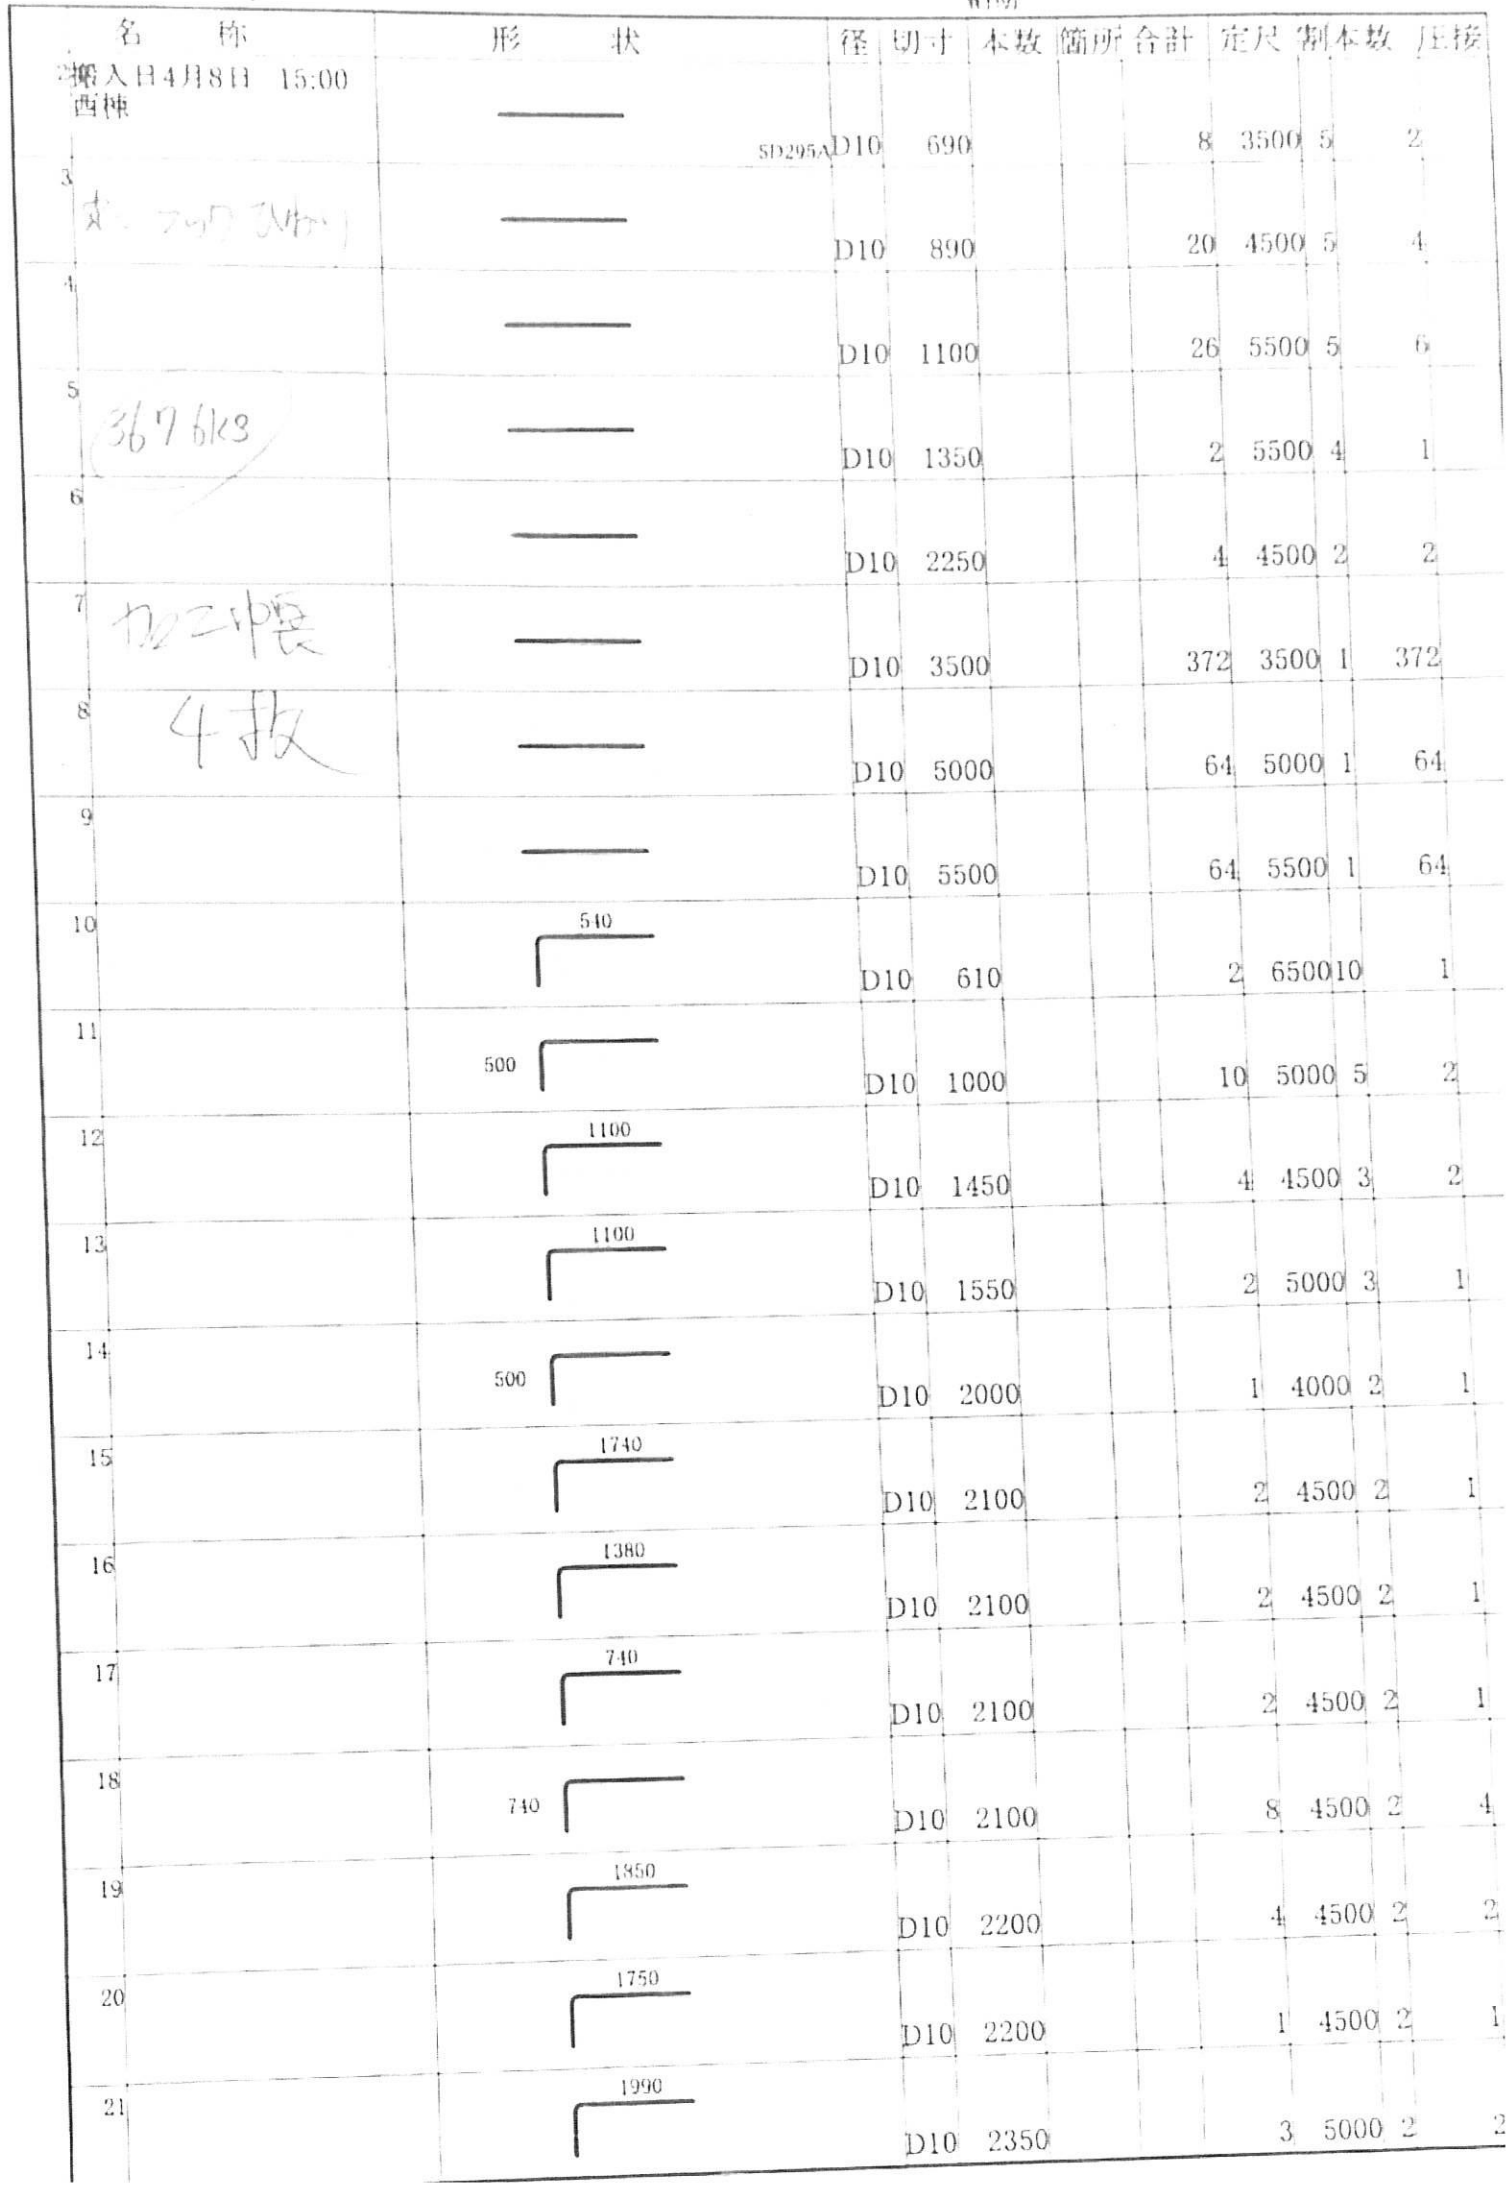 名 称 形 状 径 切寸 本数 箇所 合計 定尺 割本数 圧接
2 搬入日4月8日 15:00
西棟
SD295A D10 690 8 3500 5 2
3
D10 890 20 4500 5 4
4
D10 1100 26 5500 5 6
5
D10 1350 2 5500 4 1
6
D10 2250 4 4500 2 2
7
D10 3500 372 3500 1 372
8
4枚
D10 5000 64 5000 1 64
9
D10 5500 64 5500 1 64
10 540
D10 610 2 6500 10 1
11
500
D10 1000 10 5000 5 2
12 1100
D10 1450 4 4500 3 2
13 1100
D10 1550 2 5000 3 1
14
500
D10 2000 1 4000 2 1
15 1740
D10 2100 2 4500 2 1
16 1380
D10 2100 2 4500 2 1
17 740
D10 2100 2 4500 2 1
18
740
D10 2100 8 4500 2 4
19 1850
D10 2200 4 4500 2 2
20 1750
D10 2200 1 4500 2 1
21 1990
D10 2350 3 5000 2 2